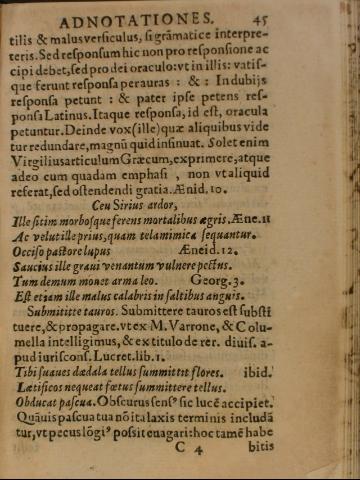 ADNOTATIONES. 45
tilis & malus versiculus, si grāmatice interpre-
teris. Sed responsum hic non pro responsione ac
cipi debet, sed pro dei oraculo: vt in illis: vatis-
que ferunt responsa perauras : & : In dubijs
responsa petunt : & pater ipse petens res-
ponsa Latinus. Itaque responsa, id est, oracula
petuntur. Deinde vox (ille) quæ aliquibus vide
tur redundare, magnū quid insinuat. Solet enim
Virgilius articulum Græcum, exprimere, atque
adeo cum quadam emphasi , non vt aliquid
referat, sed ostendendi gratia. Ænid. 10.
Ceu Sirius ardor,
Ille sitim morbosque ferens mortalibus ægris. Æne. 11
Ac velut ille prius, quam tela mimica sequantur.
Occiso pastore lupus Æneid. 12.
Saucius ille graui venantum vulnere pectus.
Tum demum mouet arma leo. Georg. 3.
Est etiam ille malus calabris in saltibus anguis.
Submititte tauros. Submittere tauros est substi
tuere, & propagare. vt ex M. Varrone, & Colu-
mella intelligimus, & ex titulo de rer. diuis. a-
pud iuriscons. Lucret. lib. 1.
Tibi suaues dædala tellus summittit flores. ibid.
Lætificos nequeat fœtus summittere tellus.
Obducat pascua. Obscurus sensꝰ sic lucē accipiet.
Quāuis pascua tua nō ita laxis terminis includā
tur, vt pecus lōgiꝰ possit euagari: hoc tamē habe
C 4 bitis